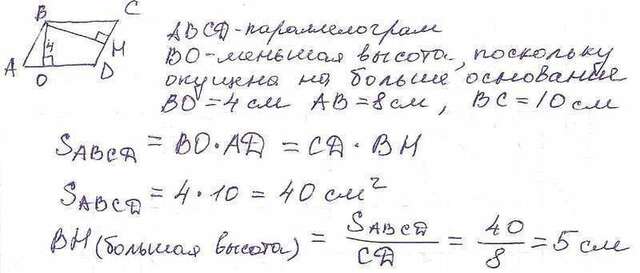 B C
4
H
A O D
ABCD - параллелограм
BO - меньшая высота, поскольку
опущена на больше основание
BO = 4 см AB = 8 см, BC = 10 см
S_ABCD = BO · AD = CD · BH
S_ABCD = 4 · 10 = 40 см²
BH (большая высота) = S_ABCD / CD = 40 / 8 = 5 см